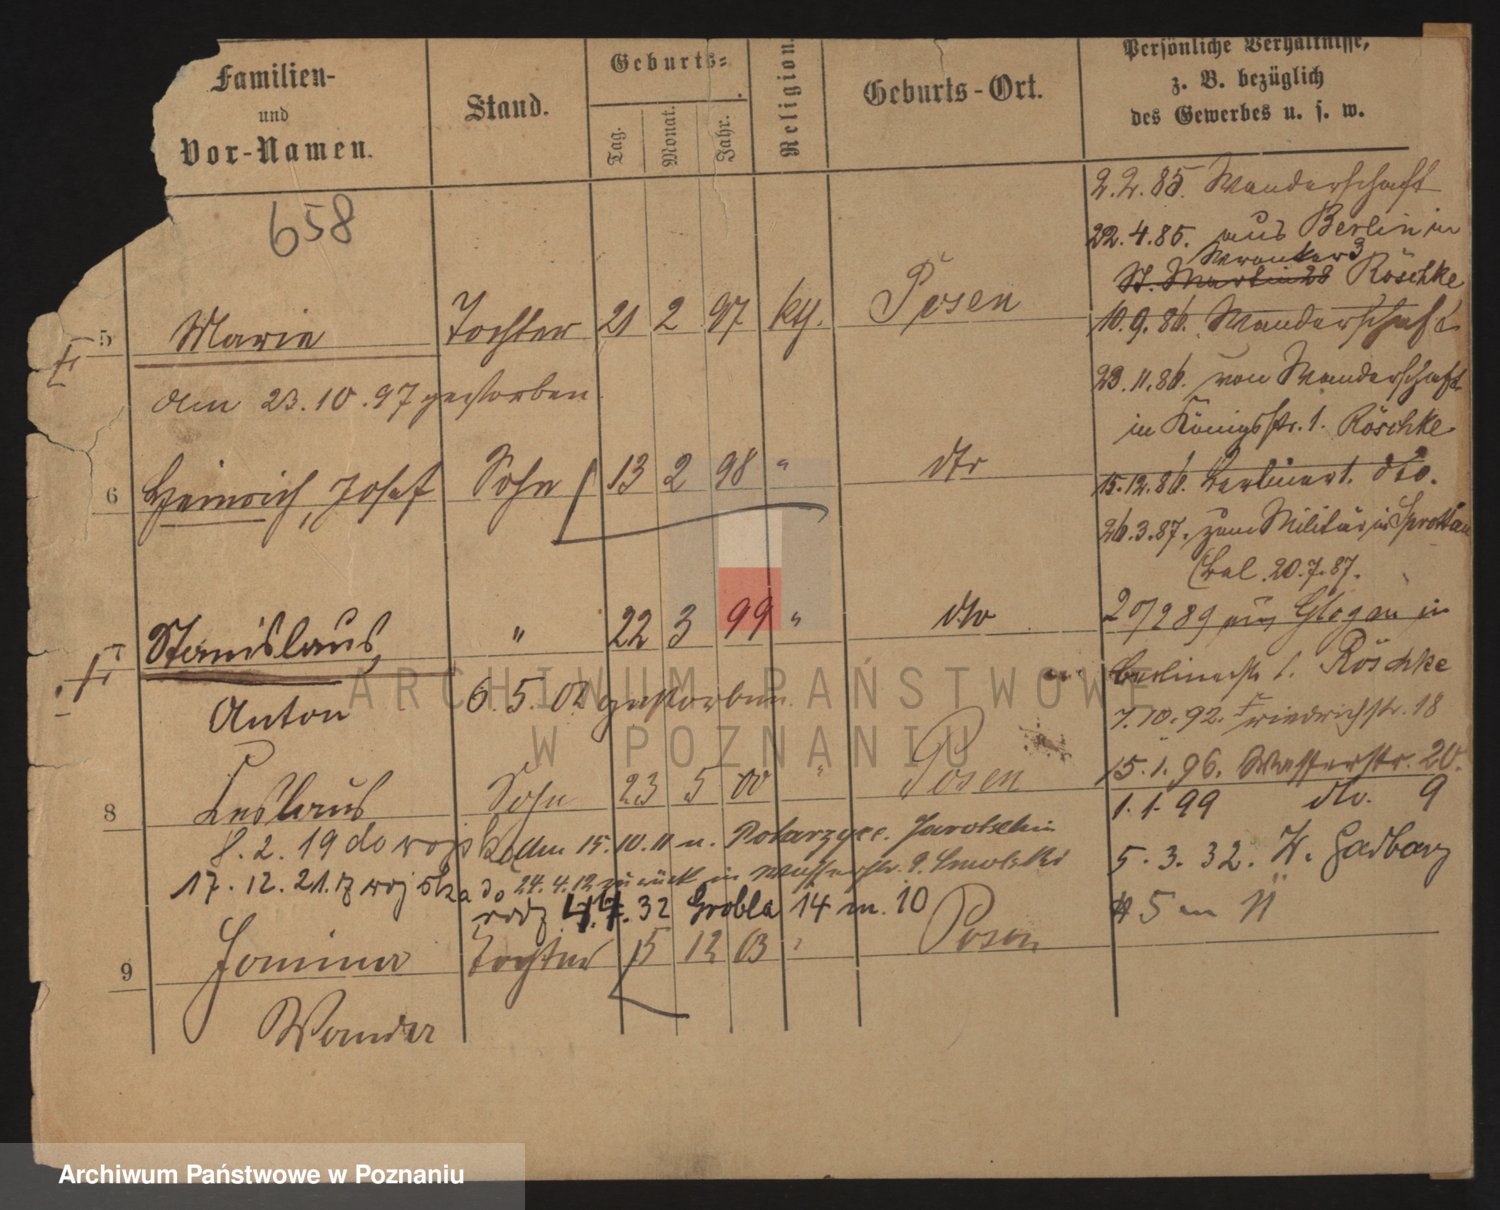 Familien-
und
Vor-Namen.
Stand.
Geburts-
Tag.
Monat.
Jahr.
Religion.
Geburts-Ort.
Persönliche Verhältnisse,
z. B. bezüglich
des Gewerbes u. s. w.
658
5 Marie Tochter 21 2 97 kth. Posen
am 23.10.97 gestorben
6 Heinrich, Josef Sohn 13 2 98 " dto
7 Stanislaus, " 22 3 99 " dto
Anton 6.5.02 gestorben
8 Leslaus Sohn 23 5 00 " Posen
8.2.19 do wojska den 15.10.11 n. Jarotschin
17.12.21. z wojska do 24.4.12 zurück in Wasserstr. 9.
rodz 4.4.32 Grobla 14 m. 10
9 Janina Tochter 15 12 03 " Posen
Wanda
2.2.85. Wanderschaft
22.4.85. aus Berlin in
Wronker 3
St. Martin 28 Röschke
10.9.86. Wanderschaft
23.11.86. von Wanderschaft
in Königsstr. 1. Röschke
15.12.86. Berlinerst. dto.
26.3.87. zum Militär in Sprottau
20.7.87.
20/2 89 aus Glogau in
Berlinerstr 1. Röschke
7.10.92. Friedrichstr. 18
15.1.96. Wasserstr. 20.
1.1.99 dto. 9
5.3.32. W. Garbary
# 5 m 11
ARCHIWUM PAŃSTWOWE
W POZNANIU
Archiwum Państwowe w Poznaniu